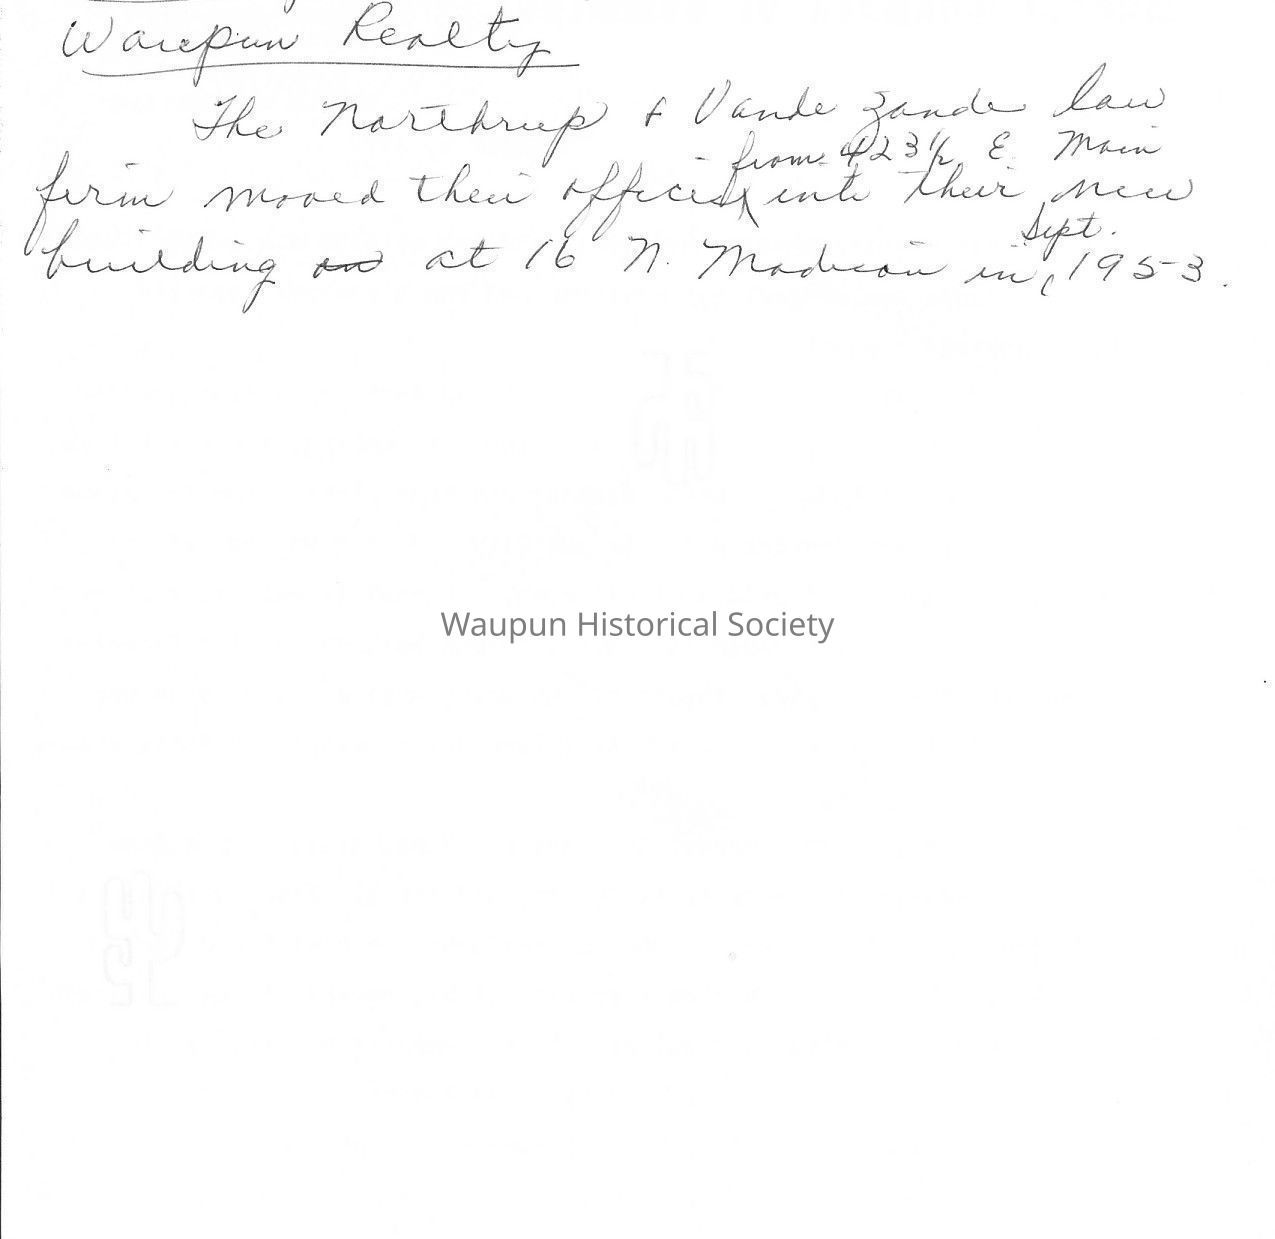 Waupun Realty
The Northrup & Vande Zande law
from 423 1/2 E. Main
firm moved their offices into their new
Sept.
building on at 16 N. Madison in 1953.
Waupun Historical Society